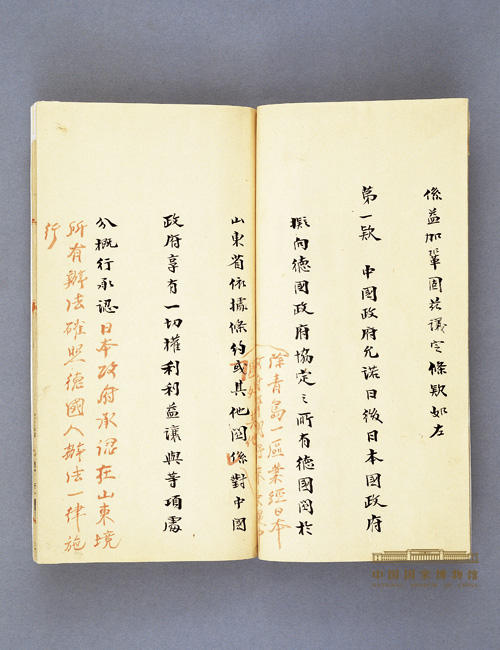 係益加鞏固茲議定條欵如左
第一欵 中國政府允諾日後日本國政府
擬向德國政府協定之所有德國關於
除青島一區業經日本
山東省依據條約或其他關係對中國
政府享有一切權利利益讓與等項處
分概行承認日本政府承認在山東境
所有辦法確照德國人辦法一律施
行
中国国家博物馆
NATIONAL MUSEUM OF CHINA